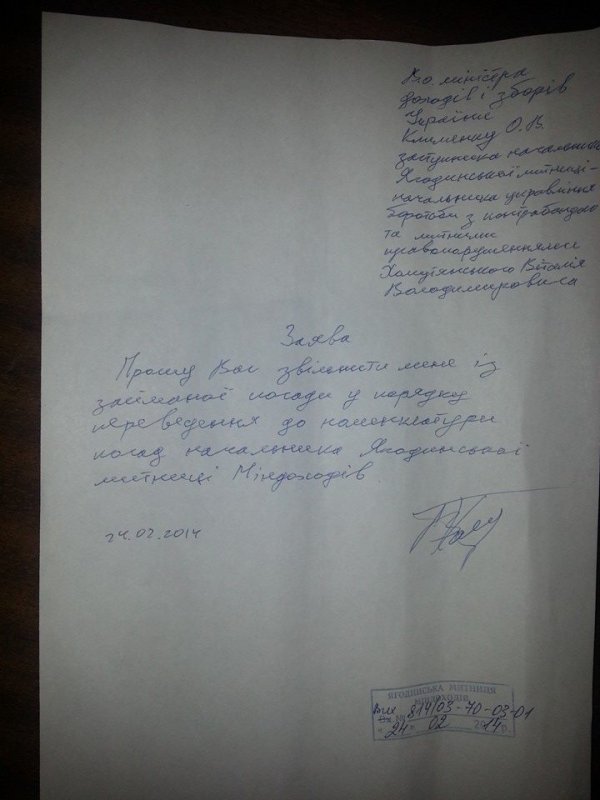 В.о. міністра
доходів і зборів
України
Клименку О.В.
заступника начальника
Ягодинської митниці -
начальника управління
боротьби з контрабандою
та митними
правопорушеннями
Хомутянського Віталія
Володимировича
Заява
Прошу Вас звільнити мене із
займаної посади у порядку
переведення до номенклатури
посад начальника Ягодинської
митниці Міндоходів.
24.02.2014
ЯГОДИНСЬКА МИТНИЦЯ
МІНДОХОДІВ
Вих № 814/03-70-03-01
"24" 02 2014 р.